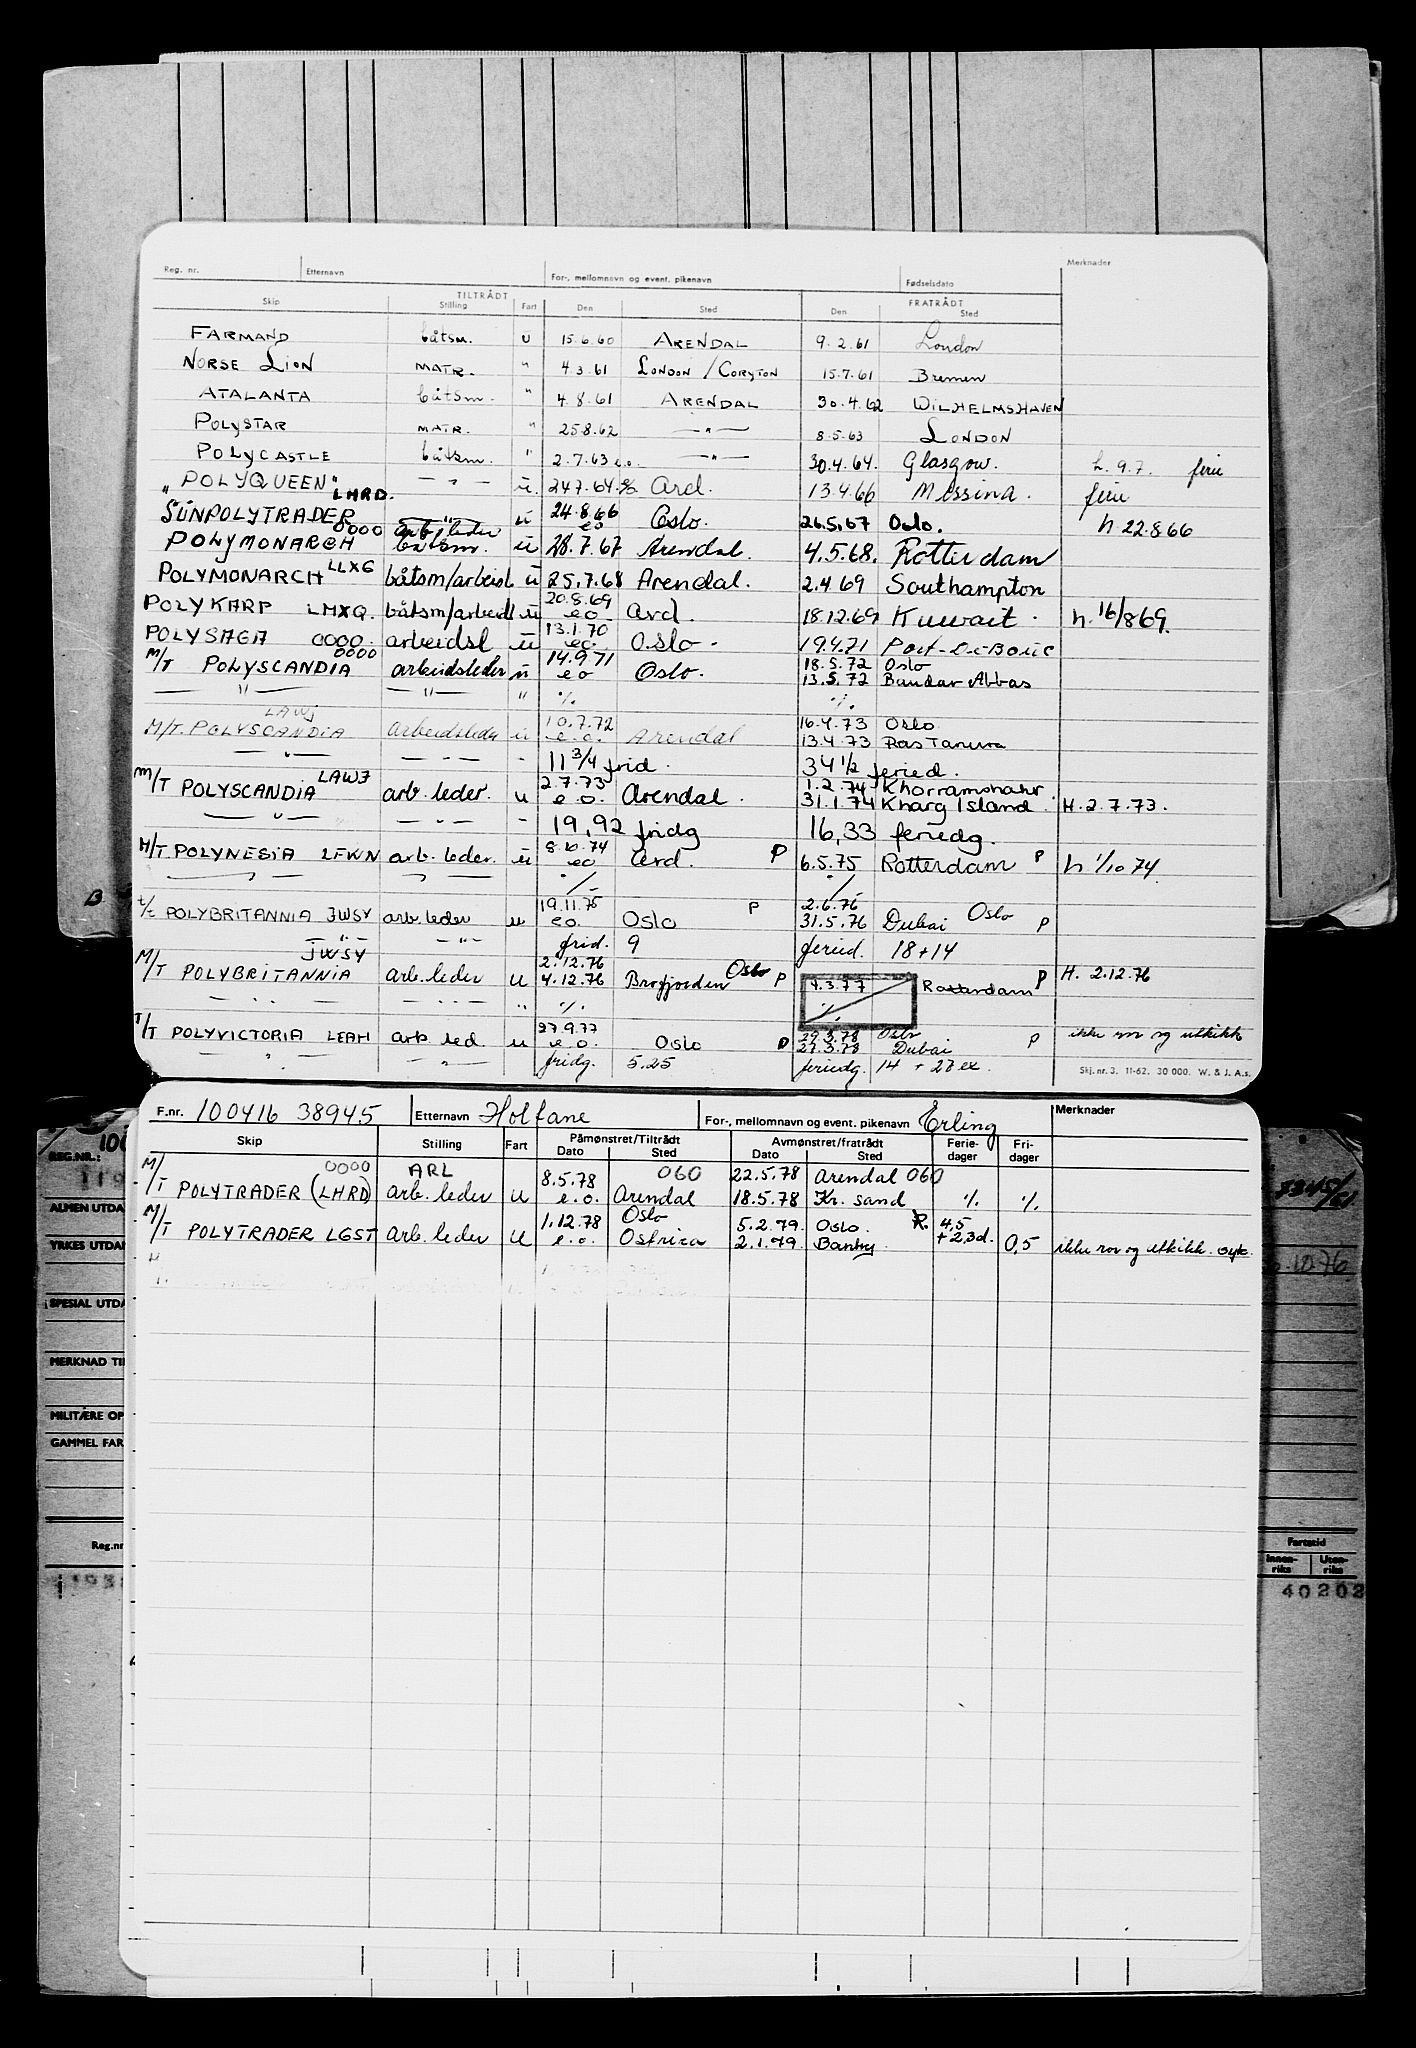 Reg. nr. Etternavn For-, mellomnavn og event. pikenavn Fødselsdato Merknader
TILTRÅDT FRATRÅDT
Skip Stilling Fart Den Sted Den Sted
FARMAND båtsm. u 15.6.60 ARENDAL 9.2.61 London
NORSE LION MATR. " 4.3.61 LONDON / CORYTON 15.7.61 Bremen
ATALANTA båtsm. " 4.8.61 ARENDAL 30.4.62 WILHELMSHAVEN
POLYSTAR MATR. " 25.8.62 —"— 8.5.63 LONDON
POLYCASTLE båtsm. " 2.7.63 e.o. —"— 30.4.64. Glasgow. h. 9.7. ferie
"POLYQUEEN" —"— u. 24.7.64. Ard. 13.4.66 Messina. ferie
LHRD.
SUNPOLYTRADER —"— u 24.8.66 eo Oslo. 26.5.67 Oslo. h 22.8.66
0000 arb.leder
POLYMONARCH båtsm. u 28.7.67 Arendal. 4.5.68. Rotterdam
POLYMONARCH LLXG båtsm/arbeidsl u 25.7.68 Arendal. 2.4 69 Southampton
POLYKARP LMXQ. båtsm/arbeidl u 20.8.69 eo Ard. 18.12.69 Kuwait. h. 16/8 69.
POLYSAGA 0000. arbeidsl u 13.1.70 eo. Oslo. 19.4.71 Port-De-Bouc
M/T POLYSCANDIA 0000 arbeidsleder u 14.9.71 eo Oslo. 18.5.72 Oslo
13.5.72 Bandar Abbas
—"— —"— " ./. ./.
LAWJ
M/T. POLYSCANDIA arbeidsleder u 10.7.72 e.o. Arendal 16.4.73 Oslo
13.4.73 Ras Tanura
—"— —"— " 11 3/4 frid. 34 1/2 feried.
M/T POLYSCANDIA LAWJ arb. leder. u 2.7.73 e.o. Arendal. 1.2.74 Khorramshahr.
31.1.74 Kharg Island. H. 2.7.73.
—"— —"— " 19,92 fridg 16,33 feriedg.
M/T POLYNESIA LFWN arb. leder. u 8.10.74 eo Ard. P 6.5.75 Rotterdam P h 1/10 74.
—"— —"— ./. ./.
t/t POLYBRITANNIA JWSY arb. leder u 19.11.75 eo. Oslo P 2.6.76 Oslo
31.5.76 Dubai P
—"— —"— frid. 9 feried. 18+14
JWSY
M/T POLYBRITANNIA arb. leder u 2.12.76 Oslo
4.12.76 Brofjorden P 9.3.77 Rotterdam P H. 2.12.76
—"— —"— " ./. ./.
T/T POLYVICTORIA LEAH arb. led. u 27.9.77 e.o. Oslo P 29.3.78 Oslo
27.3.78 Dubai P ikke ror og utkikk
—"— —"— fridg. 5,25 feriedg. 14 + 27 ex.
Skj. nr. 3. 11-62. 30 000. W. & J. A.s.
F.nr. 100416 38945 Etternavn Holfane For-, mellomnavn og event. pikenavn Erling Merknader
Skip Stilling Fart Påmønstret/Tiltrådt Avmønstret/fratrådt Ferie- Fri-
Dato Sted Dato Sted dager dager
0000 ARL 8.5.78 060 22.5.78 Arendal 060
M/T POLYTRADER (LHRD) arb. leder u e.o. Arendal 18.5.78 Kr. sand ./. ./.
1.12.78 Oslo 5.2.79. Oslo. 4,5
M/T POLYTRADER LGST arb. leder u e.o. Ostrica 2.1.79. Bantry. +2,3d. 0,5 ikke ror og utkikk. syk.
REG.NR.:
ALMEN UTDA
YRKES UTDA
SPESIAL UTDA
MERKNAD TI
MILITÆRE OP
GAMMEL FAR
Reg.nr
.10.76
Fartstid
Innen- Uten-
riks riks
40202